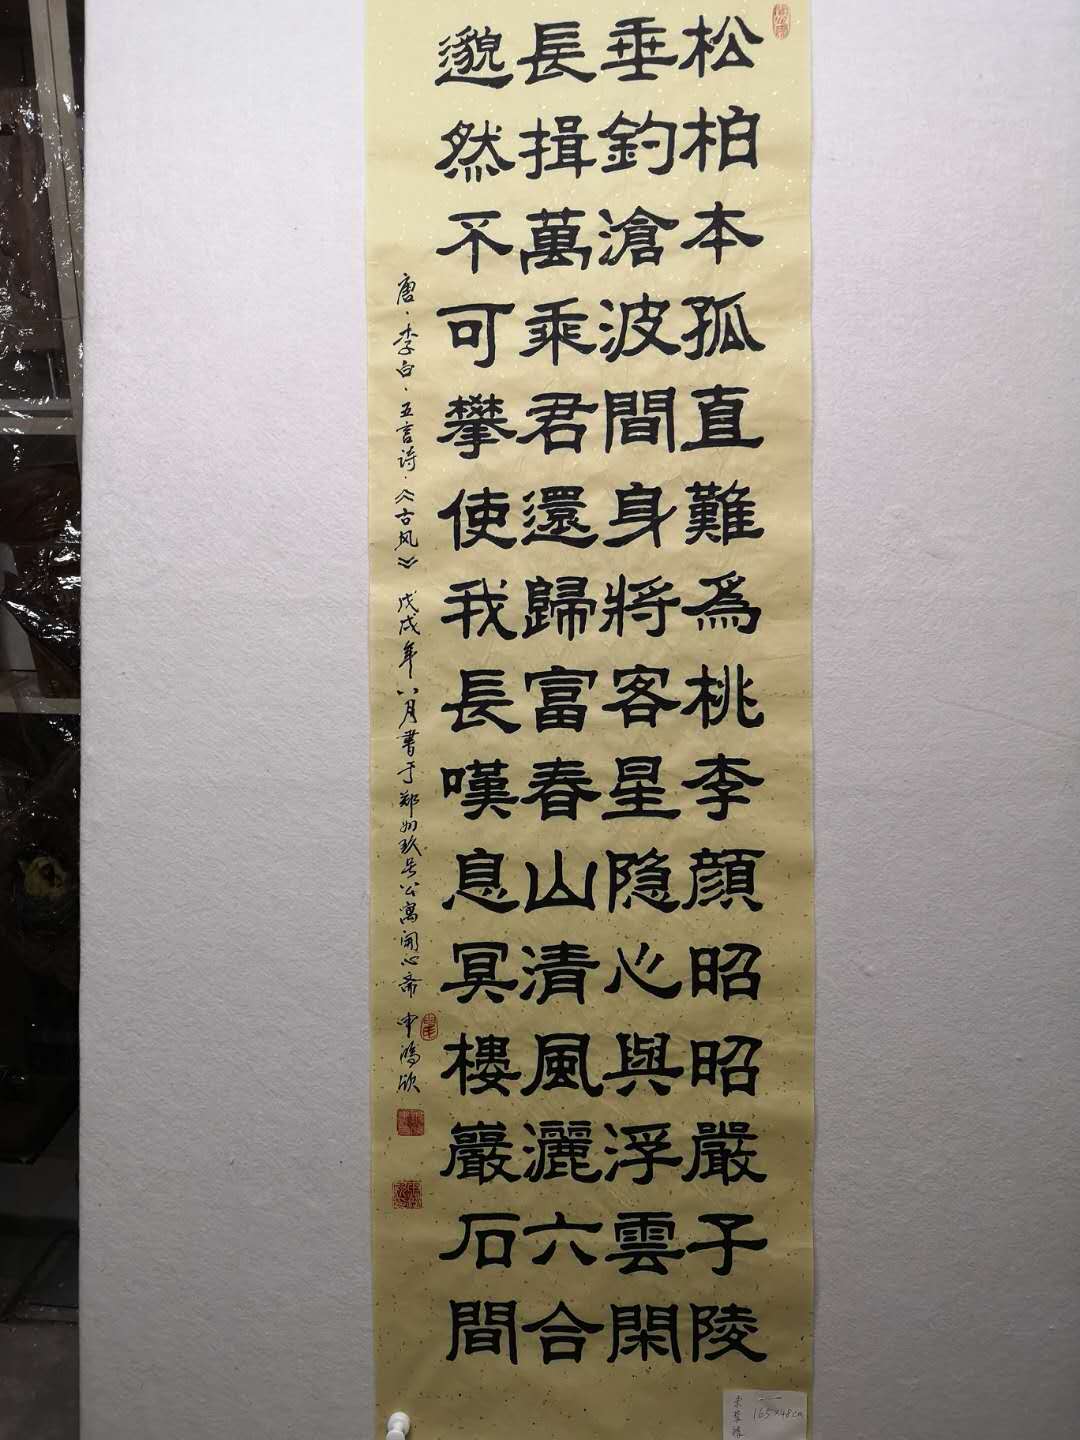 松柏本孤直難為桃李顔昭昭嚴子陵
垂釣滄波間身將客星隐心與浮雲閑
長揖萬乘君還歸富春山清風灑六合
邈然不可攀使我長嘆息冥棲巖石間
唐·李白·五言诗·《古风》 戊戌年八月書于郑州玖号公寓闲心斋 申鴻欣
165×48cm